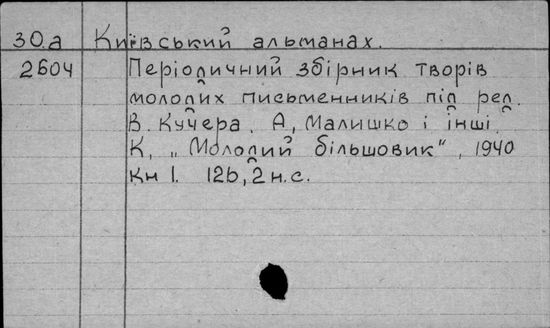 30.а Київський альманах.
2604 Періодичний збірник творів
молодих письменників під ред.
В. Кучера, А, Малишко і інші.
К, „Молодий більшовик“, 1940
Кн 1. 126, 2 н.с.